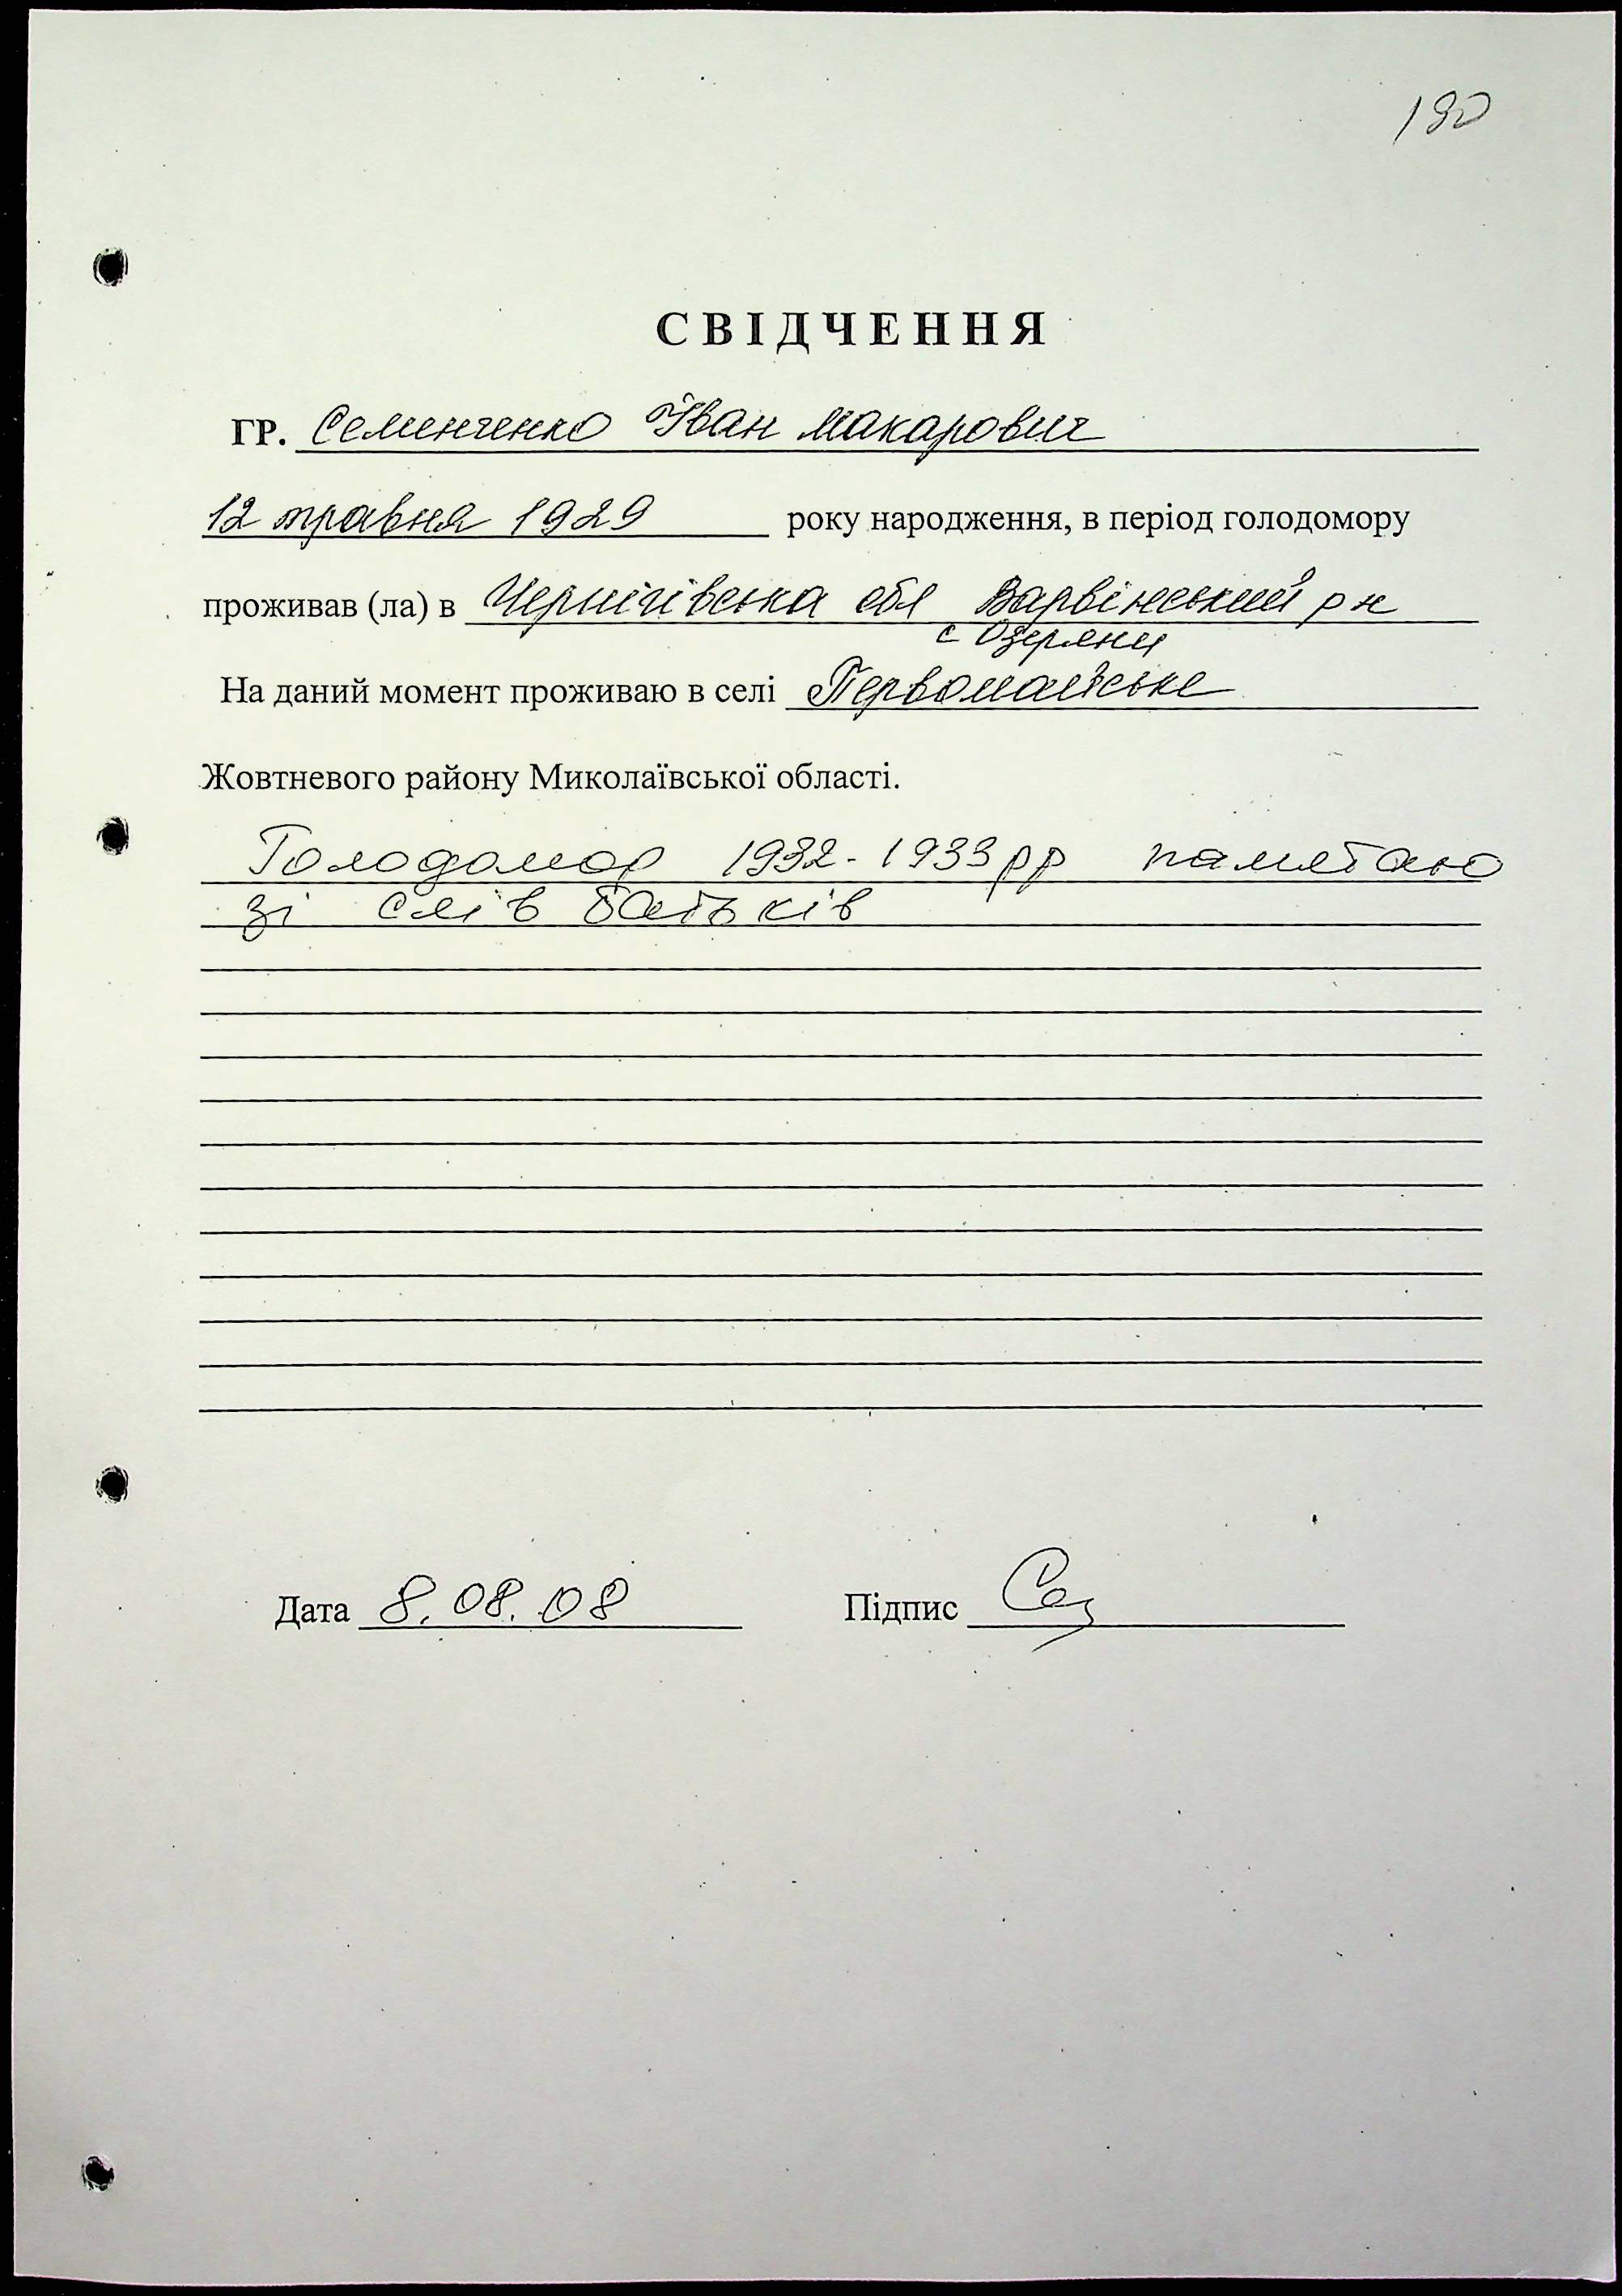 190
СВІДЧЕННЯ
ГР. Семенченко Іван Макарович
12 травня 1929 року народження, в період голодомору
проживав (ла) в Чернігівська обл Варвінський р н
с Озеряни
На даний момент проживаю в селі Первомайське
Жовтневого району Миколаївської області.
Голодомор 1932-1933 рр памятаю
зі слів батьків
Дата 8.08.08 Підпис